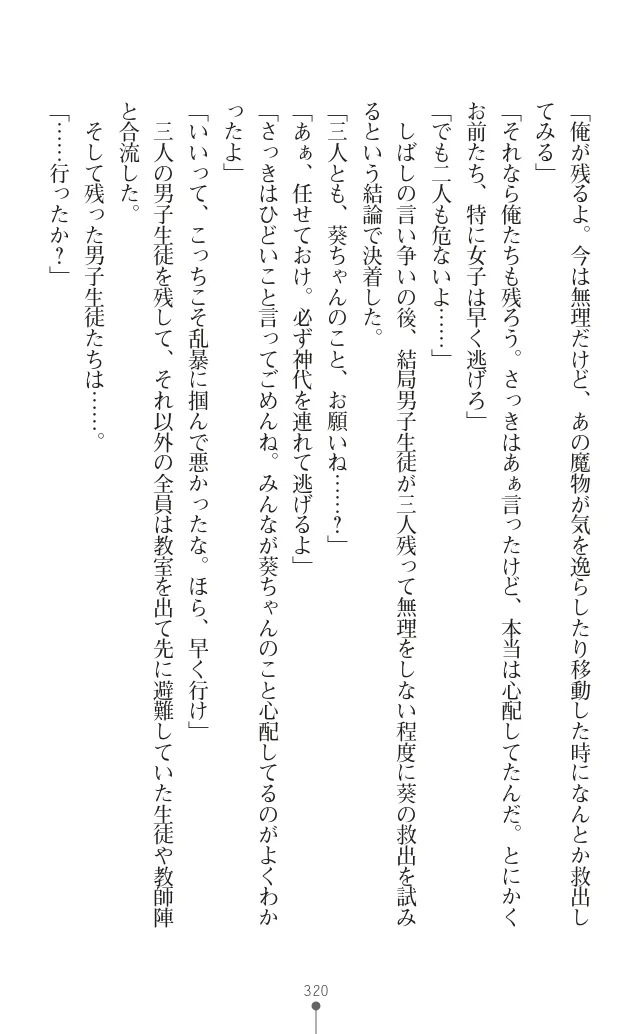 「俺が残るよ。今は無理だけど、あの魔物が気を逸らしたり移動した時になんとか救出し
てみる」
「それなら俺たちも残ろう。さっきはあぁ言ったけど、本当は心配してたんだ。とにかく
お前たち、特に女子は早く逃げろ」
「でも二人も危ないよ……」
　しばしの言い争いの後、結局男子生徒が三人残って無理をしない程度に葵の救出を試み
るという結論で決着した。
「三人とも、葵ちゃんのこと、お願いね……？」
「あぁ、任せておけ。必ず神代を連れて逃げるよ」
「さっきはひどいこと言ってごめんね。みんなが葵ちゃんのこと心配してるのがよくわか
ったよ」
「いいって、こっちこそ乱暴に掴んで悪かったな。ほら、早く行け」
　三人の男子生徒を残して、それ以外の全員は教室を出て先に避難していた生徒や教師陣
と合流した。
　そして残った男子生徒たちは……。
「……行ったか？」
320